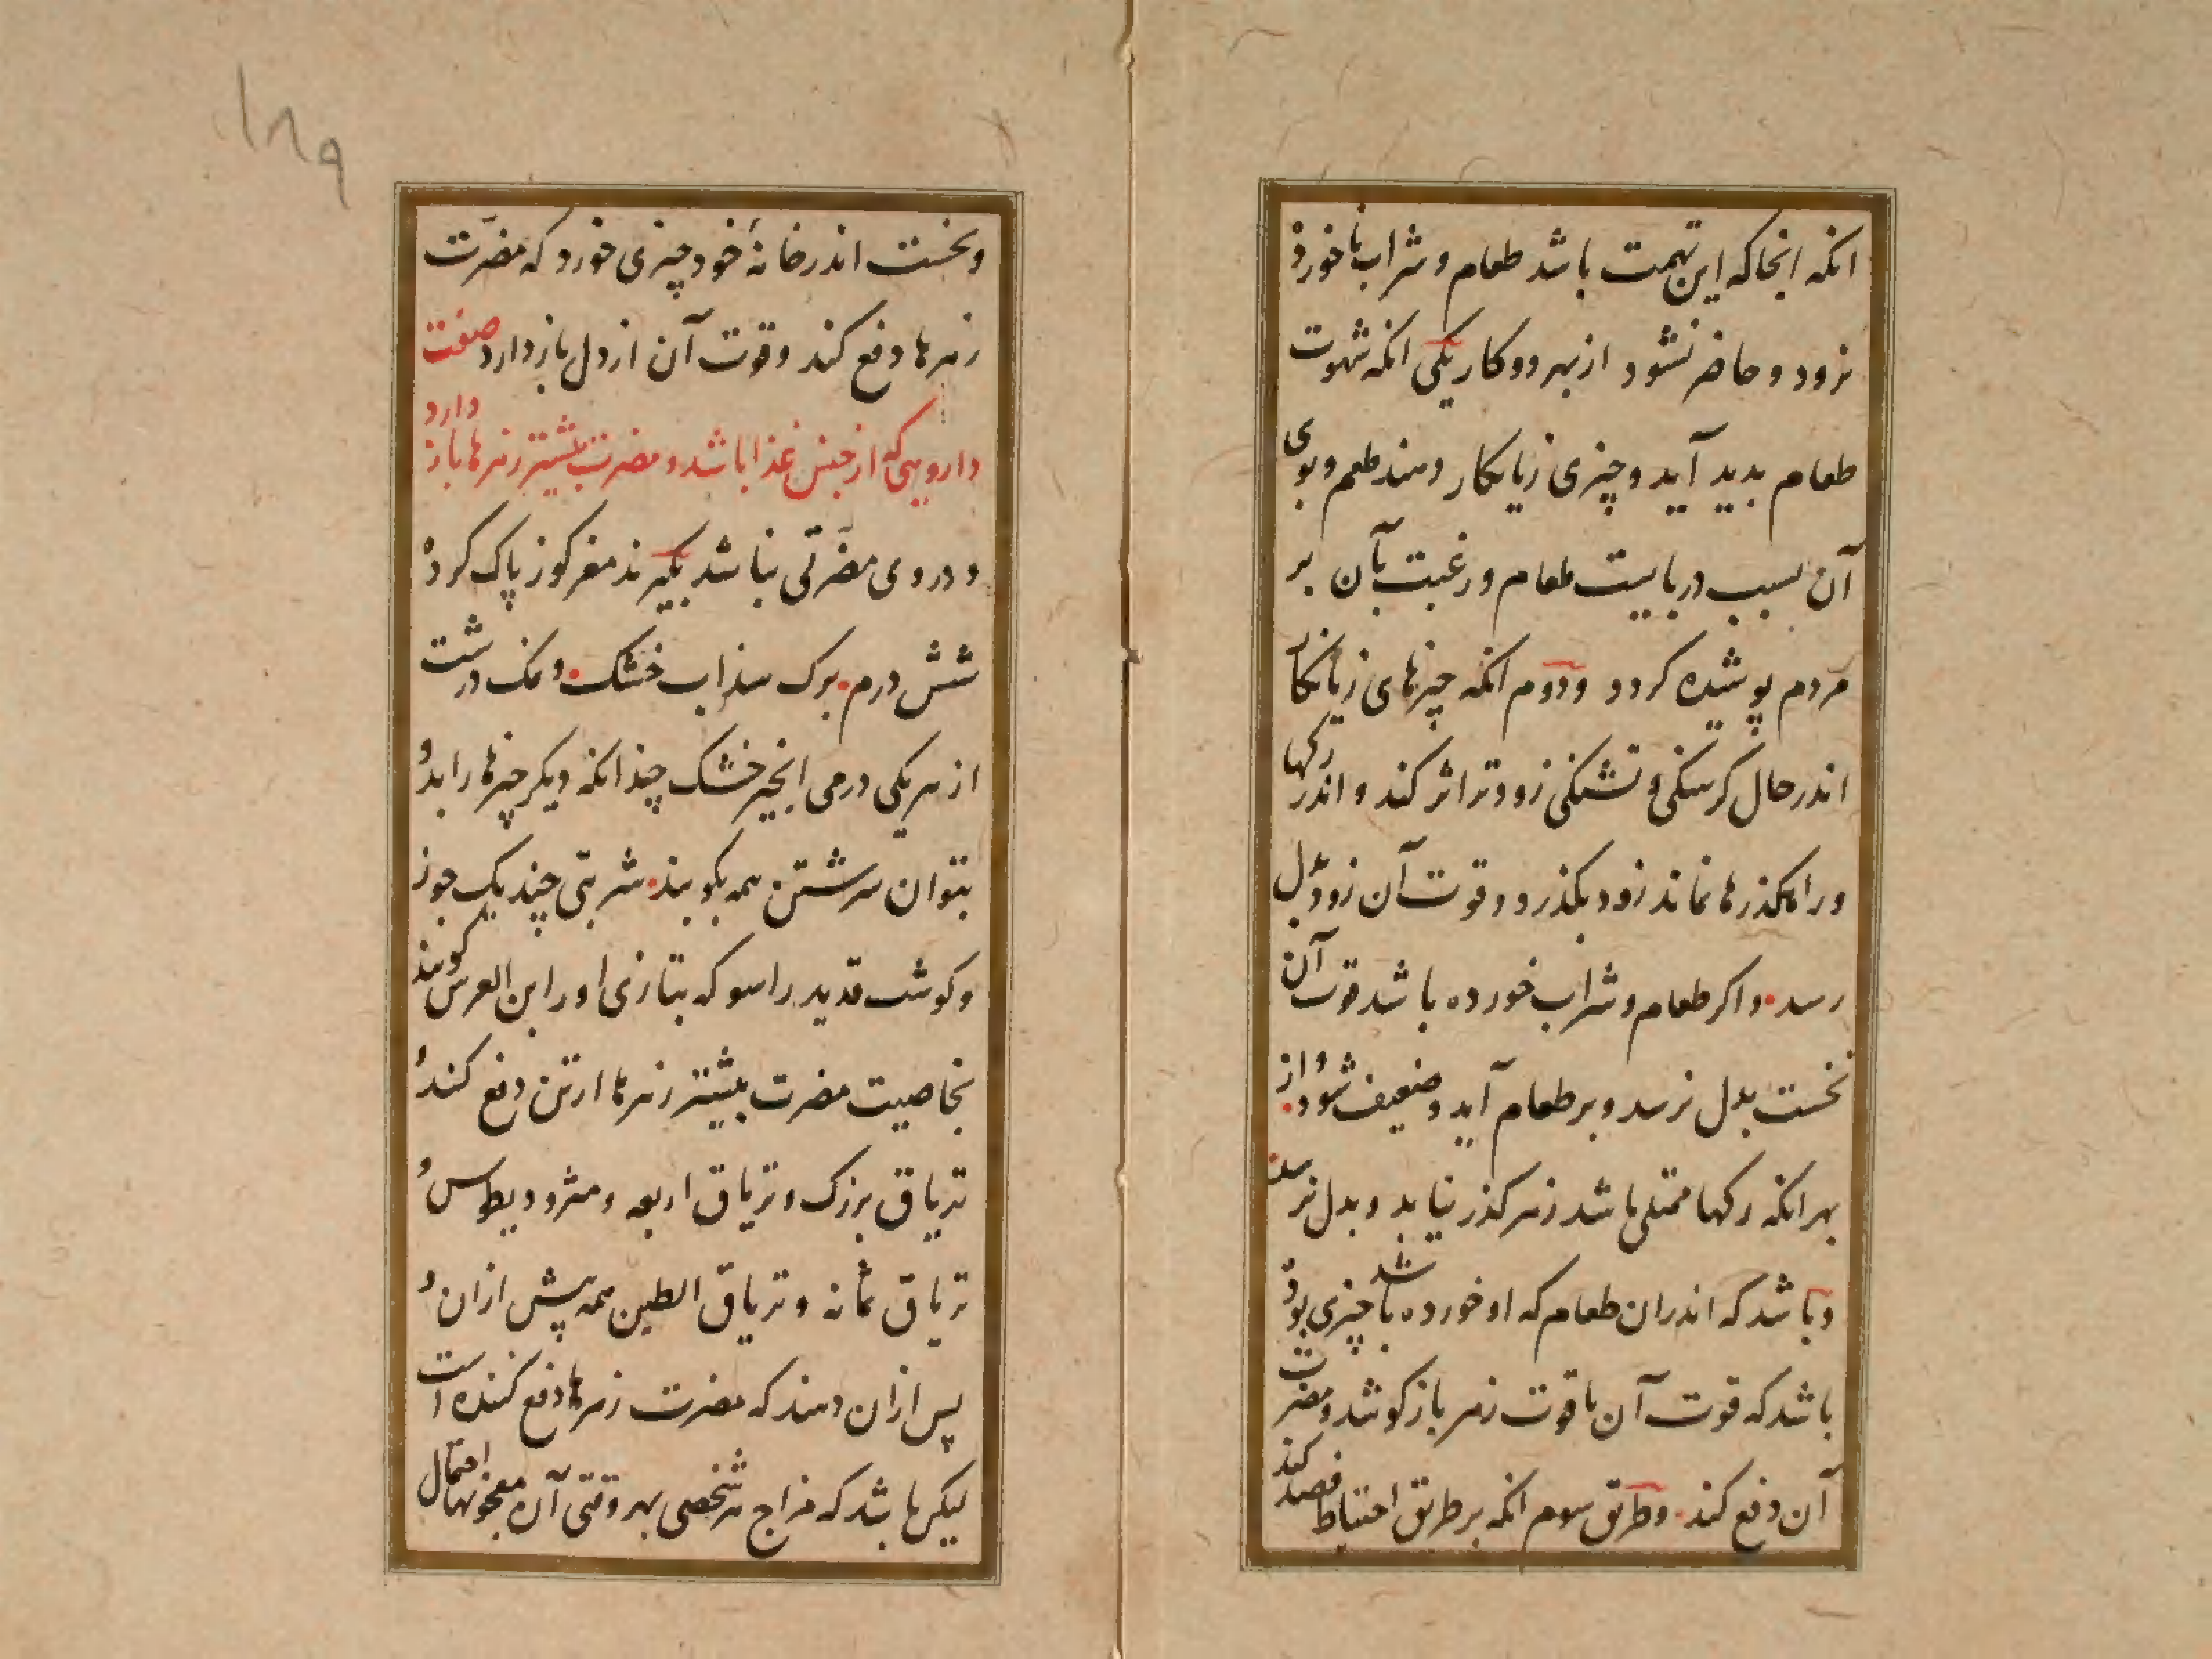 انکه انجا که این تهمت باشد طعام و شراب ناخورده
نرود و حاضر نشود از بهر دو کار یکی انکه شهوت
طعام بدید آید و چیزی زیانکار دهند طعم و بوی
آن بسبب دربایست طعام و رغبت بآن بر
مردم پوشیده کردد و دوم انکه چیزهای زیانکار
اندر حال کرسنکی و تشنکی زودتر اثر کند و اندر رکها
و راهکذرها نماند زود بکذرد و قوت آن زود بدل
رسد و اکر طعام و شراب خورده باشد قوت آن
نخست بدل نرسد و بر طعام آید و ضعیف شود و از
بهر انکه رکها ممتلی باشد زهر کذر نیابد و بدل نرسد
و باشد که اندران طعام که او خورده باشد چیزی بوده
باشد که قوت آن با قوت زهر باز کوشد و مضرت
آن دفع کند و طریق سوم انکه بر طریق احتیاط قصد کند
۱۸۹
و نخست اندر خانهٔ خود چیزی خورد که مضرّت
زهرها دفع کند و قوت آن از دل باز دارد صفت
دارویی که از جنس غذا باشد و مضرت بیشتر زهرها باز دارد
و در وی مضرّتی نباشد بکیرند مغز کوز پاک کرده
شش درم برک سذاب خشک و نمک درشت
از هر یکی درمی انجیر خشک چندانکه دیکر چیزها را بدو
بتوان سرشتن همه بکوبند شربتی چند یک جوز
و کوشت قدید راسو که بتازی او را ابن العرس کویند
بخاصیت مضرت بیشتر زهرها از تن دفع کند و
تریاق بزرک و تریاق اربعه و مثرودیطوس و
تریاق ثمانه و تریاق الطین همه پیش ازان و
پس ازان دهند که مضرت زهرها دفع کننده است
لیکن باشد که مزاج هر شخصی بهر وقتی آن معجونها احتمال